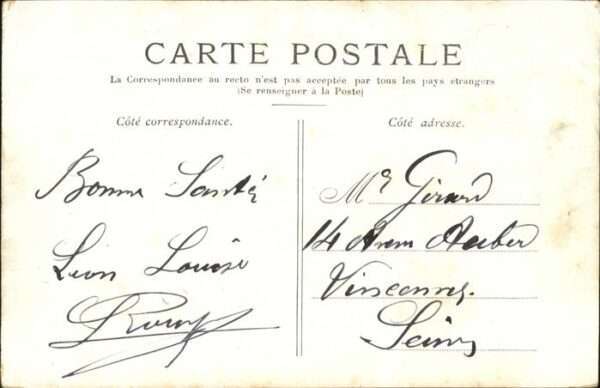 CARTE POSTALE
La Correspondance au recto n'est pas acceptée par tous les pays étrangers
(Se renseigner à la Poste)
Côté correspondance.
Côté adresse.
Bonne Santé
Léon Louise
Mr Girard
14 Auber
Vincennes
Seine